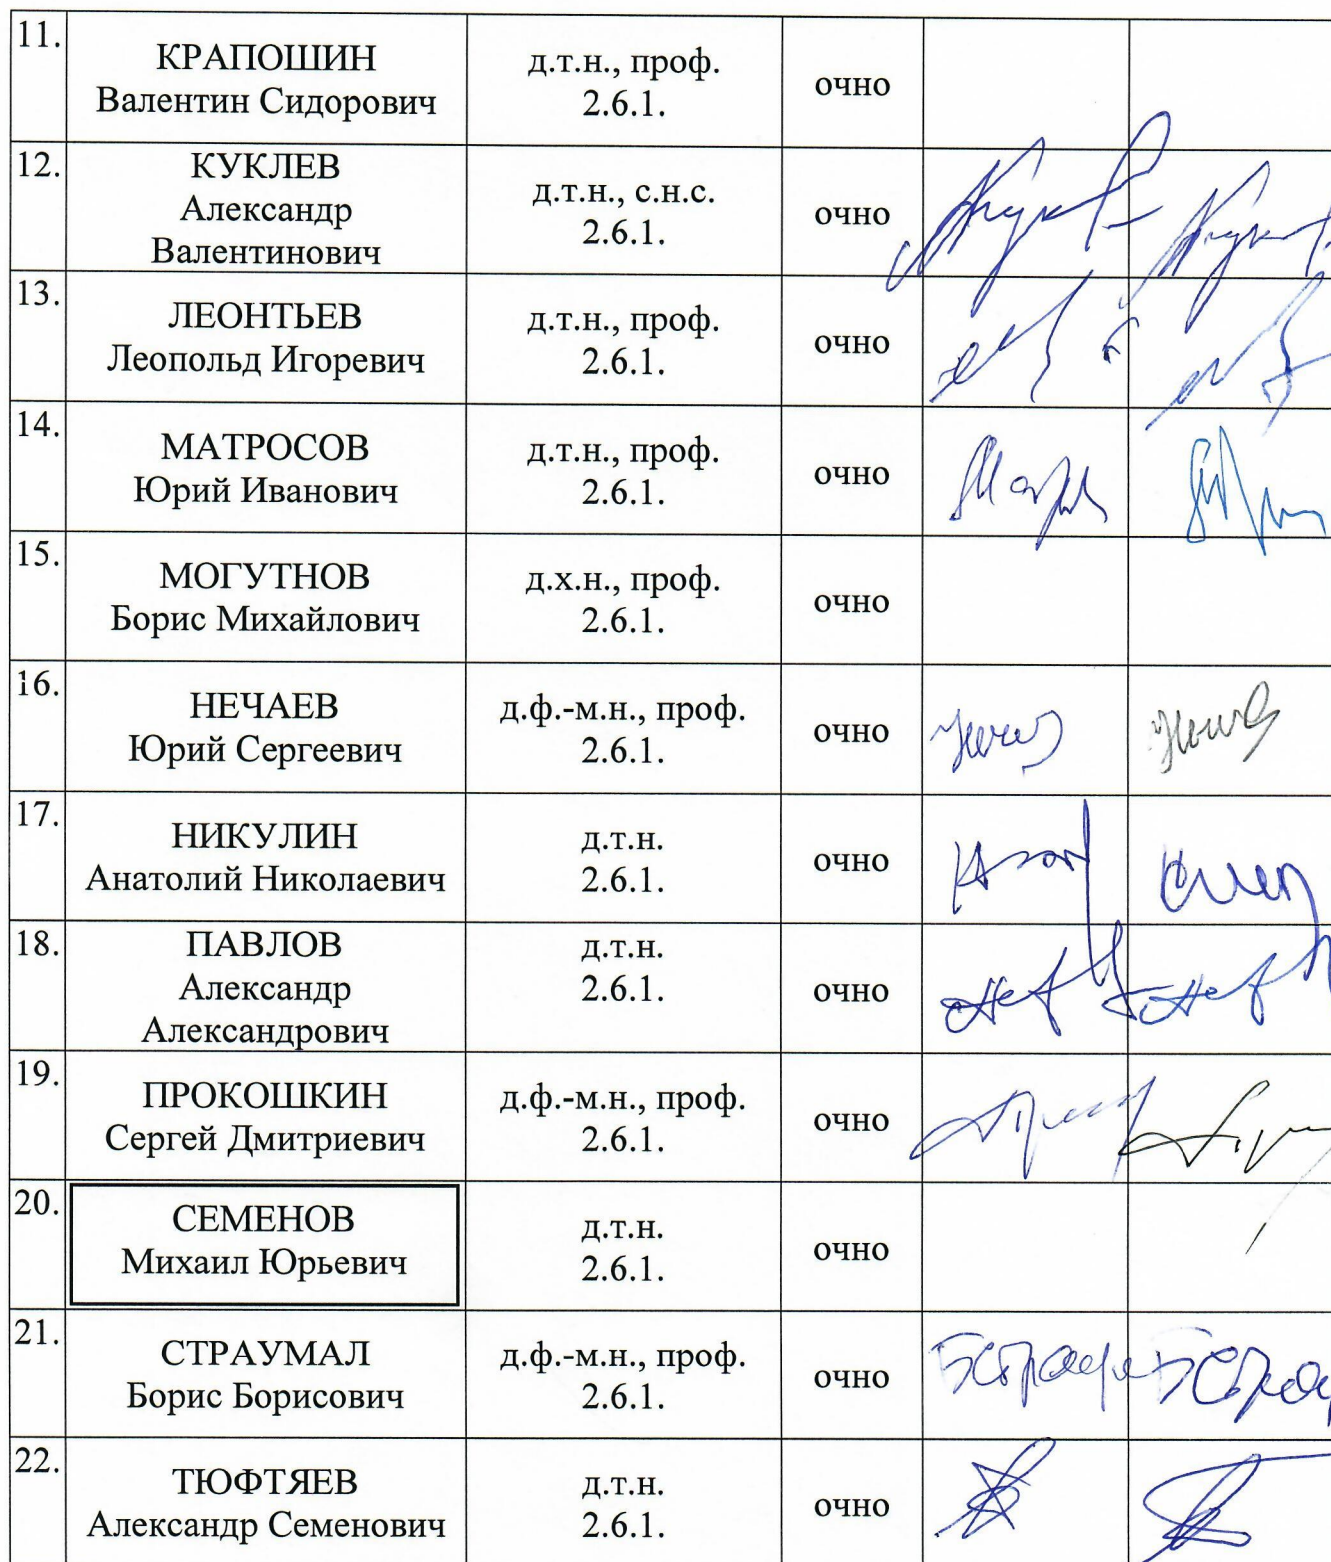 11.
КРАПОШИН
Валентин Сидорович
д.т.н., проф.
2.6.1.
очно
12.
КУКЛЕВ
Александр
Валентинович
д.т.н., с.н.с.
2.6.1.
очно
13.
ЛЕОНТЬЕВ
Леопольд Игоревич
д.т.н., проф.
2.6.1.
очно
14.
МАТРОСОВ
Юрий Иванович
д.т.н., проф.
2.6.1.
очно
15.
МОГУТНОВ
Борис Михайлович
д.х.н., проф.
2.6.1.
очно
16.
НЕЧАЕВ
Юрий Сергеевич
д.ф.-м.н., проф.
2.6.1.
очно
17.
НИКУЛИН
Анатолий Николаевич
д.т.н.
2.6.1.
очно
18.
ПАВЛОВ
Александр
Александрович
д.т.н.
2.6.1.
очно
19.
ПРОКОШКИН
Сергей Дмитриевич
д.ф.-м.н., проф.
2.6.1.
очно
20.
СЕМЕНОВ
Михаил Юрьевич
д.т.н.
2.6.1.
очно
21.
СТРАУМАЛ
Борис Борисович
д.ф.-м.н., проф.
2.6.1.
очно
22.
ТЮФТЯЕВ
Александр Семенович
д.т.н.
2.6.1.
очно